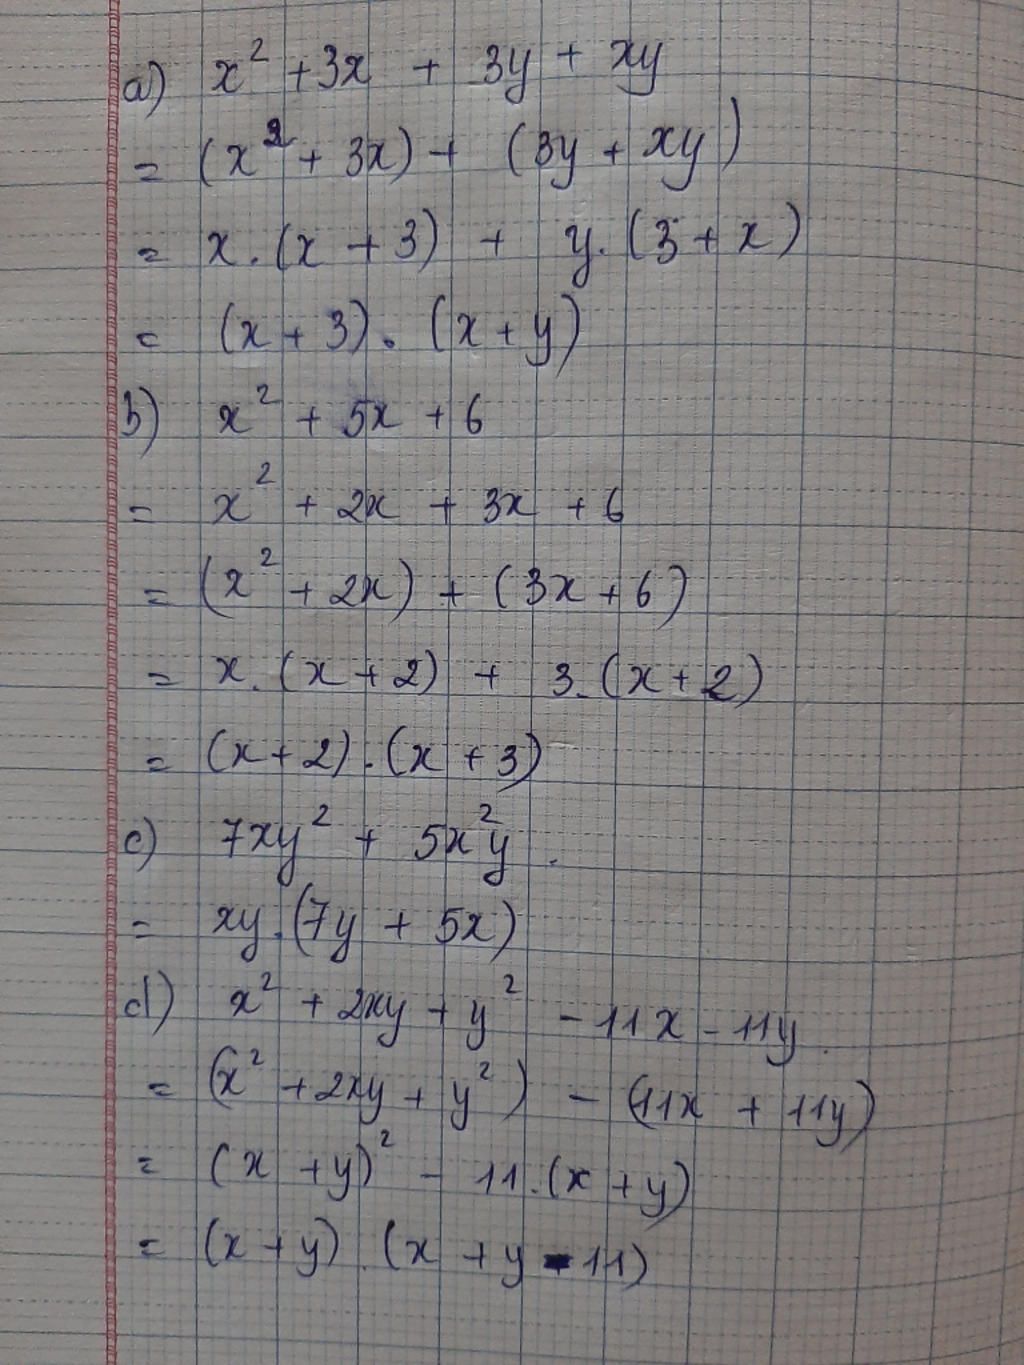 a) x² + 3x + 3y + xy
= (x² + 3x) + (3y + xy)
= x.(x + 3) + y.(3 + x)
= (x + 3).(x + y)
b) x² + 5x + 6
= x² + 2x + 3x + 6
= (x² + 2x) + (3x + 6)
= x.(x + 2) + 3.(x + 2)
= (x + 2).(x + 3)
c) 7xy² + 5x²y.
= xy.(7y + 5x)
d) x² + 2xy + y² - 11x - 11y.
= (x² + 2xy + y²) - (11x + 11y)
= (x + y)² - 11.(x + y)
= (x + y).(x + y - 11)